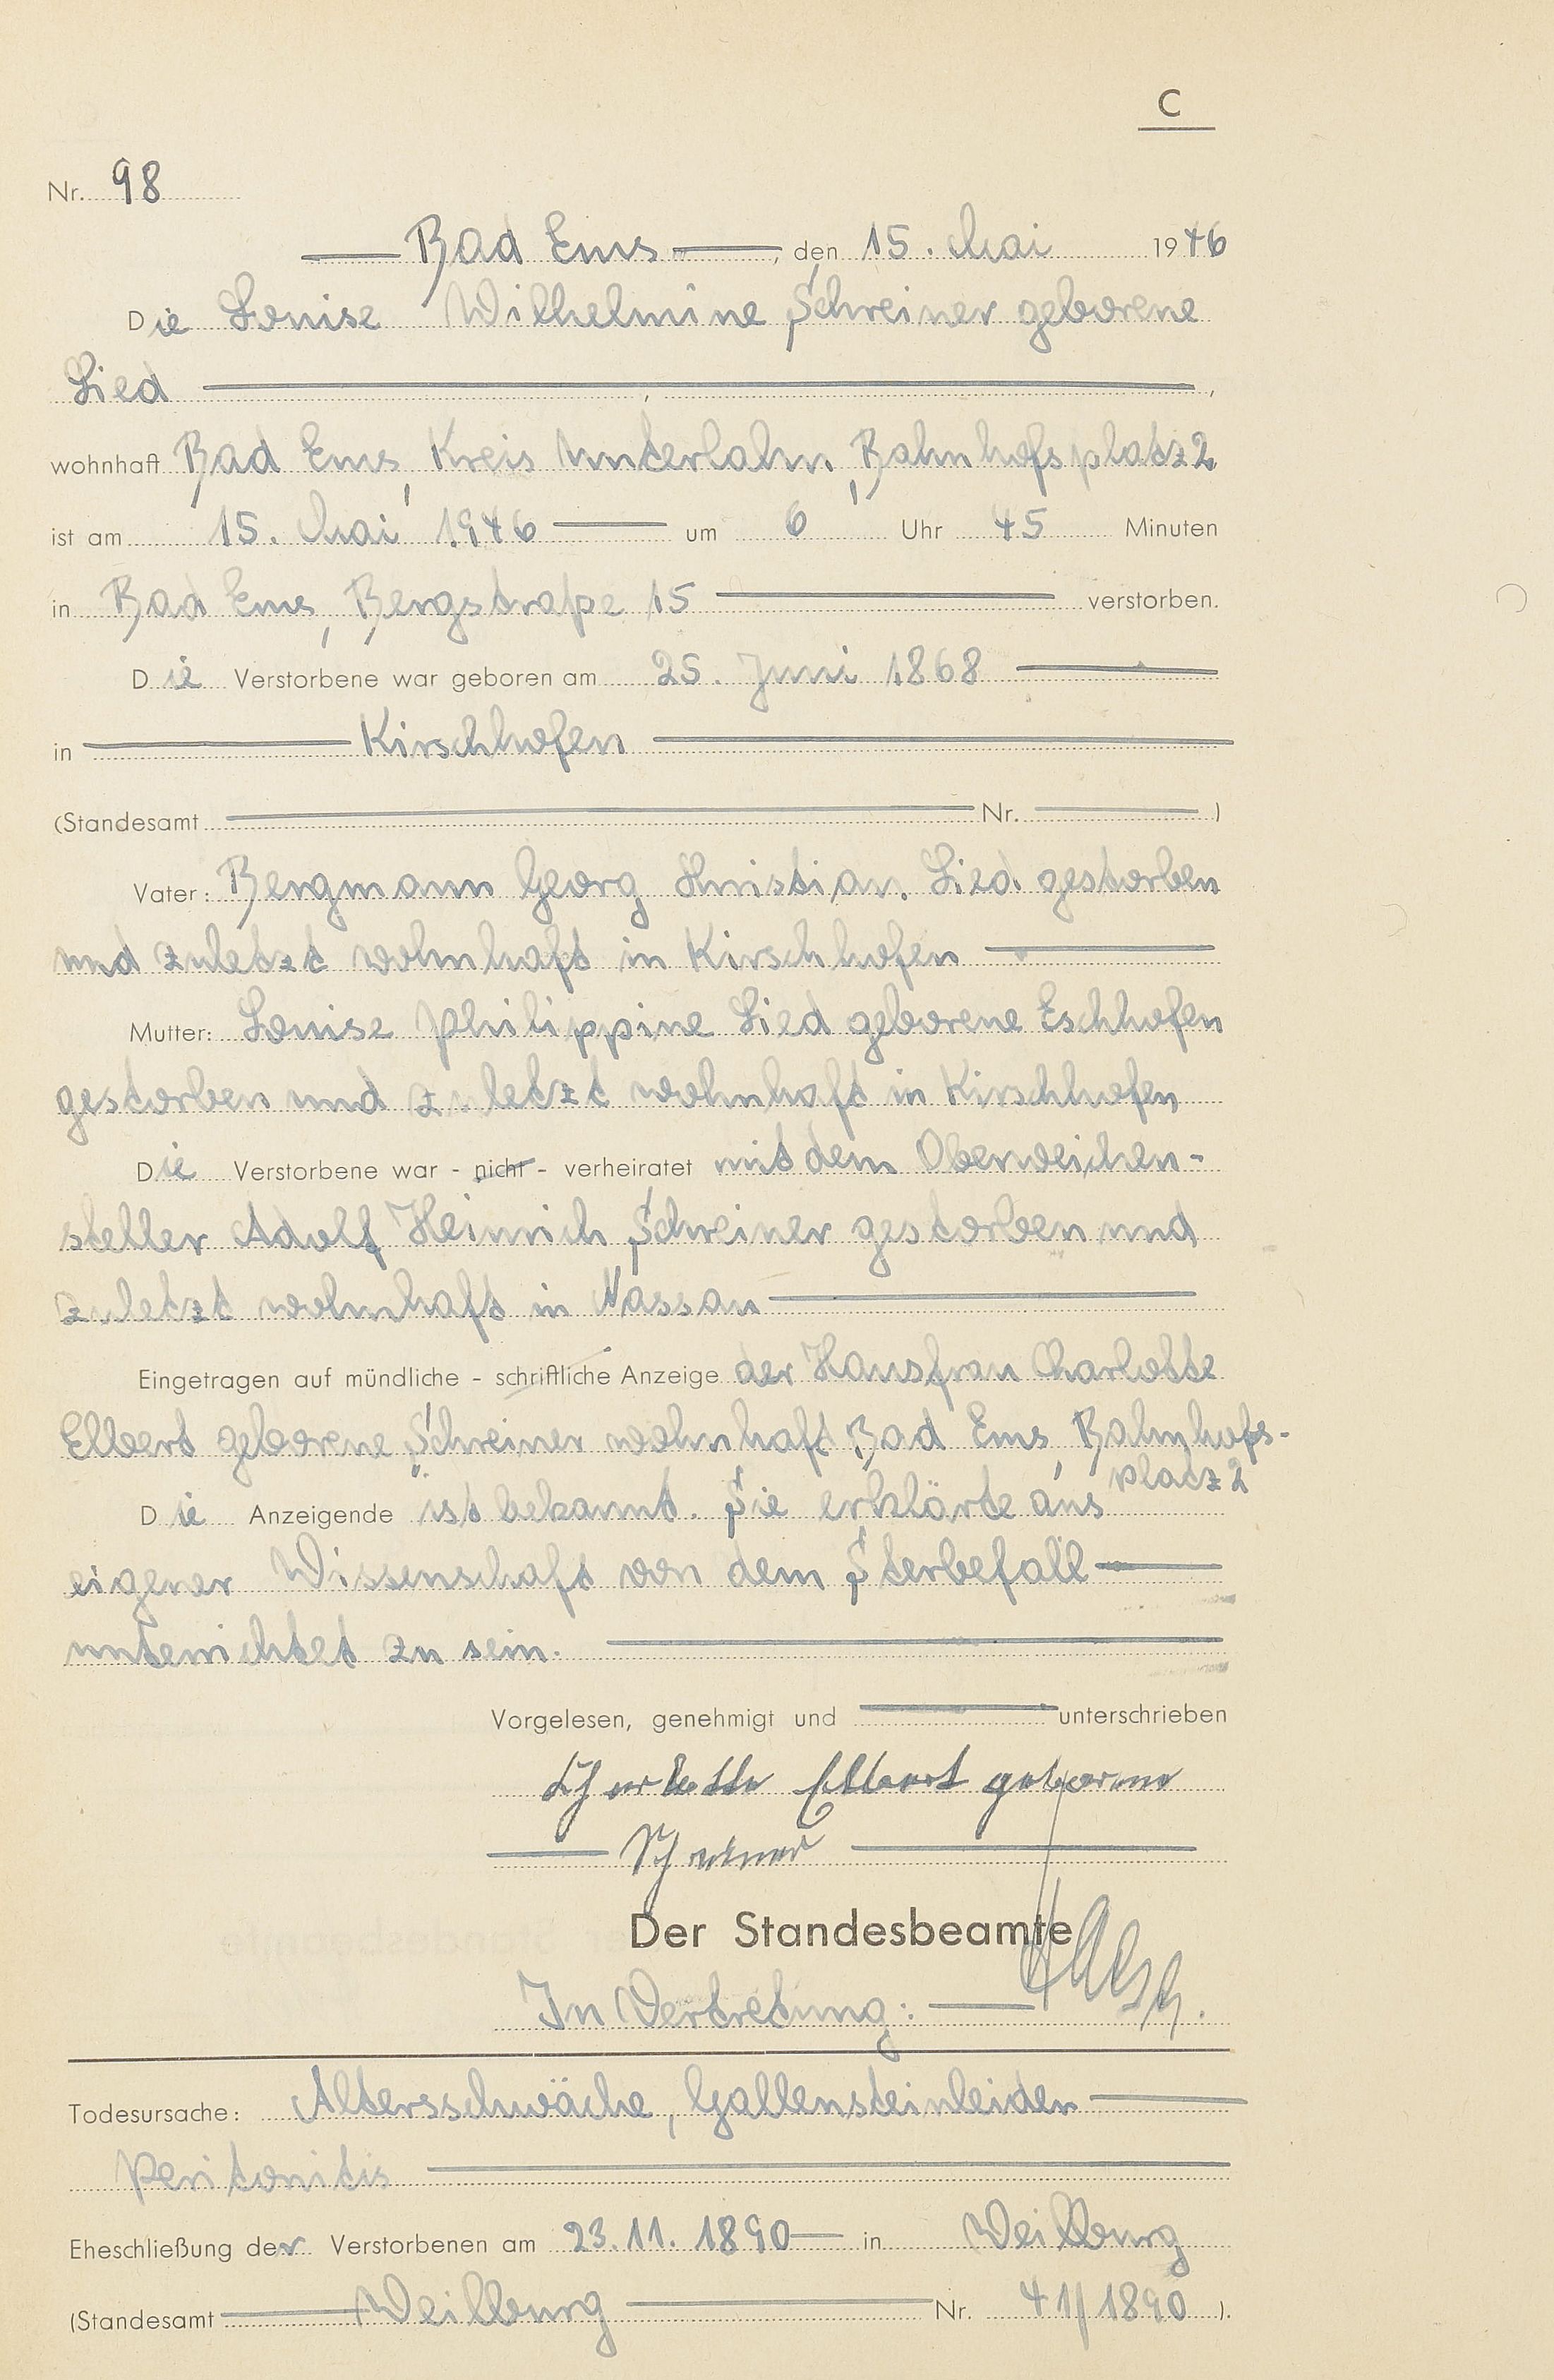 C
Nr. 98
Bad Ems, den 15. Mai 1946
Die Louise Wilhelmine Schreiner geborene
Lied,
wohnhaft Bad Ems, Kreis Unterlahn, Bahnhofsplatz 2
ist am 15. Mai 1946 um 6 Uhr 45 Minuten
in Bad Ems, Bergstraße 15 verstorben.
Die Verstorbene war geboren am 25. Juni 1868
in Kirschhofen
(Standesamt Nr. )
Vater: Bergmann Georg Christian Lied gestorben
und zuletzt wohnhaft in Kirschhofen
Mutter: Louise Philippine Lied geborene Eschhofen
gestorben und zuletzt wohnhaft in Kirschhofen
Die Verstorbene war - nicht - verheiratet mit dem Oberweichen-
steller Adolf Heinrich Schreiner gestorben und
zuletzt wohnhaft in Nassau
Eingetragen auf mündliche - schriftliche Anzeige der Hausfrau Charlotte
Elbert geborene Schreiner wohnhaft Bad Ems, Bahnhofs-
platz 2
Die Anzeigende ist bekannt. Sie erklärte aus
eigener Wissenschaft von dem Sterbefall
unterrichtet zu sein.
Vorgelesen, genehmigt und unterschrieben
Charlotte Elbert geborene
Schreiner
Der Standesbeamte
In Vertretung:
Todesursache: Altersschwäche, Gallensteinleiden
Peritonitis
Eheschließung der Verstorbenen am 23.11.1890 in Weilburg
(Standesamt Weilburg Nr. 41/1890 ).